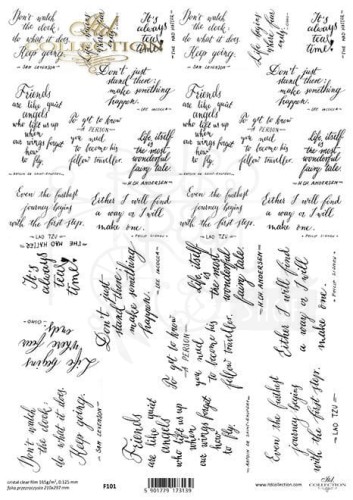 Don't watch
the clock;
do what it does.
Keep going.
SAM LEVENSON
Life begins
where fear
ends.
It's
always
tea
time!
THE MAD HATTER
Don't watch
the clock;
do what it does.
Keep going.
SAM LEVENSON
Life begins
where fear
ends.
It's
always
tea
time!
THE MAD HATTER
COLLECTION
Friends
are like quiet
angels
who lift us up
when
our wings forget
how
to fly.
Don't just
stand there;
make something
happen.
LEE IACOCCA
To get to know
a PERSON
you need
to become his
fellow traveller.
Life itself
is the most
wonderful
fairy tale.
H.CH. ANDERSEN
Friends
are like quiet
angels
who lift us up
when
our wings forget
how
to fly.
Don't just
stand there;
make something
happen.
LEE IACOCCA
To get to know
a PERSON
you need
to become his
fellow traveller.
Life itself
is the most
wonderful
fairy tale.
H.CH. ANDERSEN
Even the farthest
journey begins
with the first step.
LAO TZU
Either I will find
a way or I will
make one.
PHILIP SIDNEY
Even the farthest
journey begins
with the first step.
LAO TZU
Either I will find
a way or I will
make one.
PHILIP SIDNEY
It's
always
tea
time!
THE MAD HATTER
Don't just
stand there;
make something
happen.
LEE IACOCCA
Life itself
is the most
wonderful
fairy tale.
H.CH. ANDERSEN
Either I will find
a way or I will
make one.
PHILIP SIDNEY
Life begins
where fear
ends.
To get to know
a PERSON
you need
to become his
fellow traveller.
Don't watch
the clock;
do what it does.
Keep going.
SAM LEVENSON
Friends
are like quiet
angels
who lift us up
when
our wings forget
how
to fly.
Even the farthest
journey begins
with the first step.
LAO TZU
F101
5 901779 173139
www.itdcollection.com